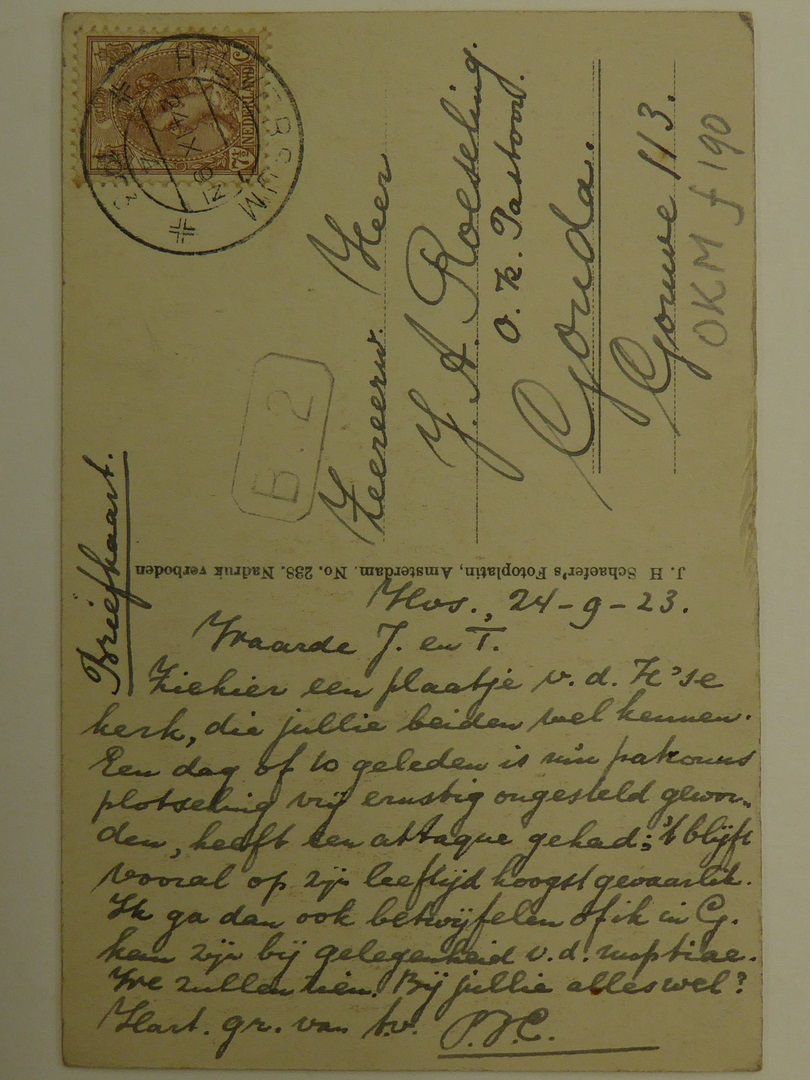 Briefkaart.
HILVERSUM
NEDERLAND
7½
B. 2
Zeereerw. Heer
J. A. Roeseling.
O. K. Pastoor.
Gouda.
Gouwe 113.
OKM f 190
J. H. Schaefer's Fotoplatin, Amsterdam. No. 238. Nadruk verboden
Hvs., 24-9-23.
Waarde J. en T.
Ziehier een plaatje v. d. H'se
kerk, die jullie beiden wel kennen.
Een dag of 10 geleden is m'n patroons
plotseling vrij ernstig ongesteld gewor-
den, heeft een attaque gehad; 't blijft
vooral op zijn leeftijd hoogst gevaarlik.
Ik ga dan ook betwijfelen of ik in G.
kan zijn bij gelegenheid v. d. nuptiae.
We zullen zien. Bij jullie alles wel?
Hart. gr. van t.v.